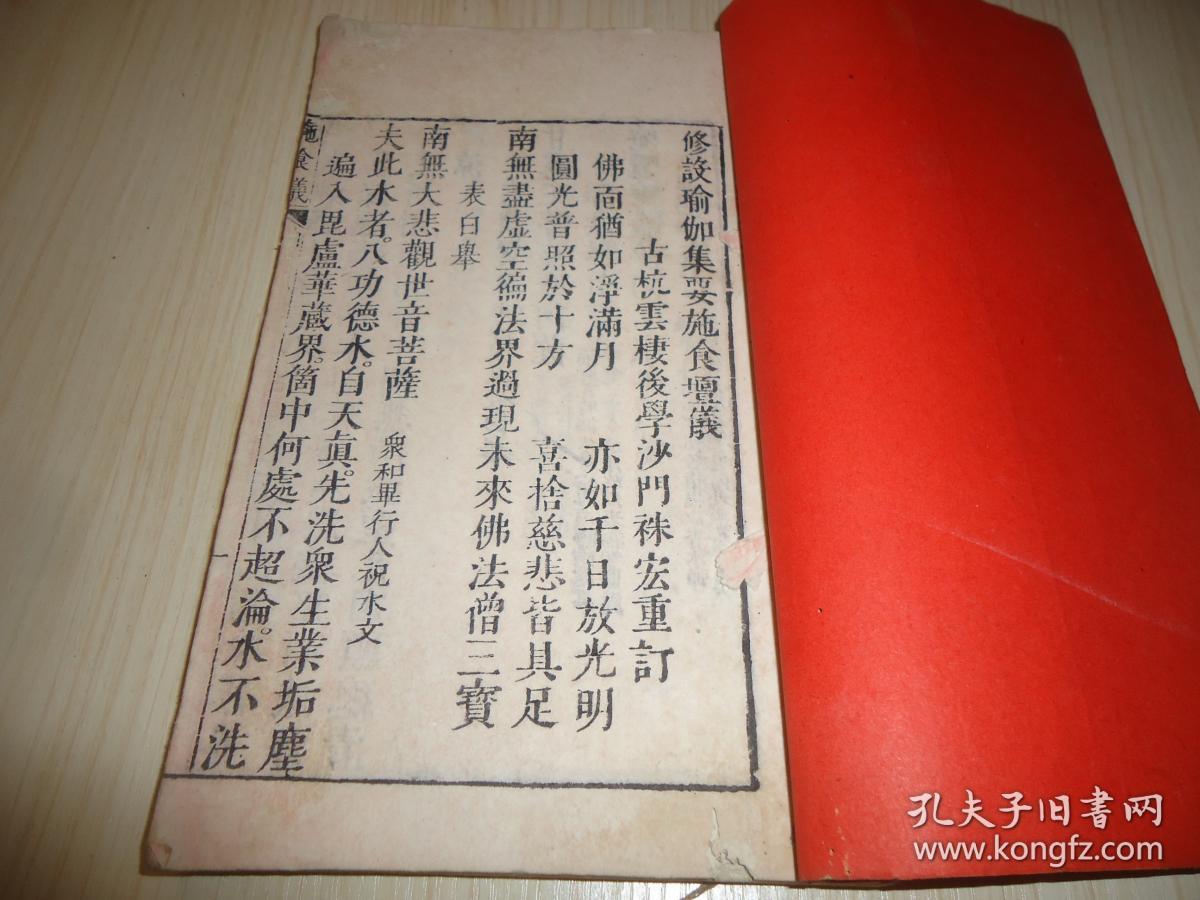 修設瑜伽集要施食壇儀
古杭雲棲後學沙門袾宏重訂
佛面猶如淨滿月 亦如千日放光明
圓光普照於十方 喜捨慈悲皆具足
南無盡虛空徧法界過現未來佛法僧三寶
表白舉
南無大悲觀世音菩薩 衆和畢行人祝水文
夫此水者。八功德水。自天眞。先洗衆生業垢塵
遍入毘盧華藏界。箇中何處不超淪。水不洗
施食儀
孔夫子旧书网
www.kongfz.com